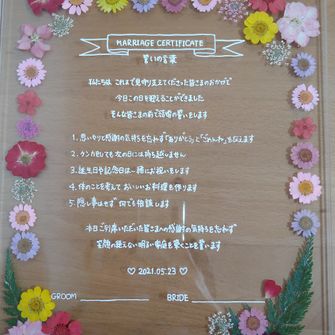 MARRIAGE CERTIFICATE
誓いの言葉
私たちは これまで見守ってくださった皆さまのおかげで
今日この日を迎えることができました
そんな皆さまの前で結婚の誓いをします
1. 思いやりと感謝の気持ちを忘れず「ありがとう」と「ごめんね」を伝えます
2. ケンカをしても次の日には持ち越しません
3. 誕生日や記念日は一緒にお祝いをします
4. 体のことを考えて おいしいお料理を作ります
5. 隠し事はせず 何でも相談します
本日ご列席いただいた皆さまへの感謝の気持ちを忘れず
笑顔の絶えない明るい家庭を築くことを誓います
♡ 2021.05.23 ♡
GROOM
BRIDE